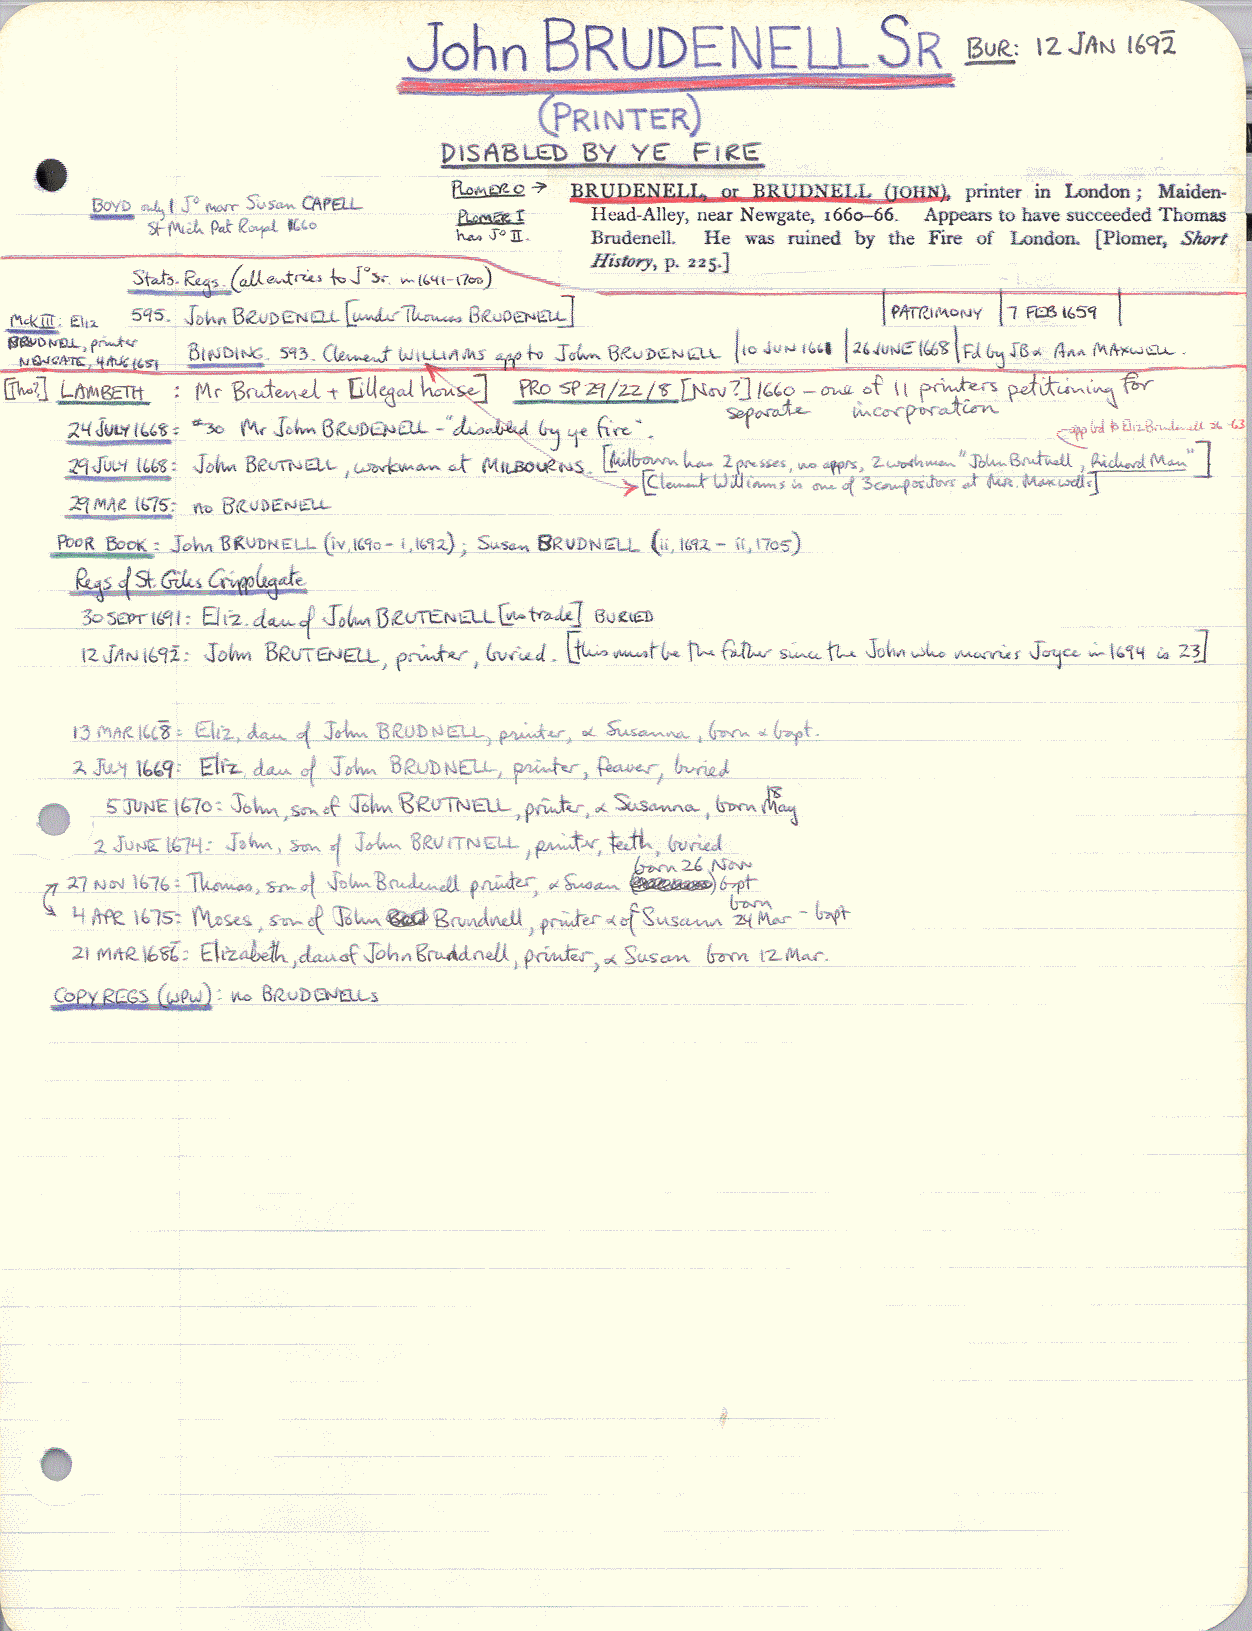 John BRUDENELL SR BUR: 12 JAN 1692̄
(PRINTER)
DISABLED BY YE FIRE
BOYD only 1 Jo marr Susan CAPELL
St Mich Pat Royal 1660
PLOMER O →
PLOMER I
has Jo II.
BRUDENELL, or BRUDNELL (JOHN), printer in London; Maiden-
Head-Alley, near Newgate, 1660–66. Appears to have succeeded Thomas
Brudenell. He was ruined by the Fire of London. [Plomer, Short
History, p. 225.]
Stats. Regs. (all entries to Jo Sr. in 1641-1700)
595. John BRUDENELL [under Thomas BRUDENELL] | PATRIMONY | 7 FEB 1659 |
McK III: Eliz
BRUDNELL, printer
NEWGATE, 4 AUG 1651
BINDING. 593. Clement WILLIAMS app to John BRUDENELL | 10 JUN 1661 | 26 JUNE 1668 | Fd by JB & Ann MAXWELL.
[Tho?] LAMBETH : Mr Brutenel + [illegal house] PRO SP 29/22/8 [Nov?] 1660 – one of 11 printers petitioning for
separate incorporation
24 JULY 1668: #30 Mr John BRUDENELL – "disabled by ye fire".
app bd to Eliz Brudenell 56-63
29 JULY 1668: John BRUTNELL, workman at MILBOURNS. [Milbourn has 2 presses, no apprs, 2 workmen "John Brutnell, Richard Man"]
[Clement Williams is one of 3 compositors at Mrs. Maxwells]
29 MAR 1675: no BRUDENELL
POOR BOOK: John BRUDNELL (iv, 1690 – i, 1692); Susan BRUDNELL (ii, 1692 – ii, 1705)
Regs of St. Giles Cripplegate
30 SEPT 1691: Eliz. dau of John BRUTENELL [no trade] BURIED
12 JAN 1692̄: John BRUTENELL, printer, buried. [this must be the father since the John who marries Joyce in 1694 is 23]
13 MAR 1668̄: Eliz, dau of John BRUDNELL, printer, & Susanna, born & bapt.
2 JULY 1669: Eliz, dau of John BRUDNELL, printer, feaver, buried
5 JUNE 1670: John, son of John BRUTNELL, printer, & Susanna, born 18 May
2 JUNE 1674: John, son of John BRUITNELL, printer, teeth, buried
27 NOV 1676: Thomas, son of John Brudenell printer, & Susan born 26 Nov bapt
4 APR 1675: Moses, son of John Brundnell, printer & of Susann born 24 Mar – bapt
21 MAR 1686̄: Elizabeth, dau of John Bruddnell, printer, & Susan born 12 Mar.
COPY REGS (WPW): no BRUDENELLs